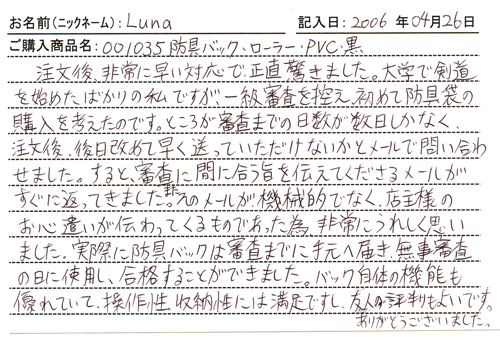 お名前(ニックネーム):Luna 記入日:2006年04月26日
ご購入商品名:001035防具バック、ローラー・PVC・黒
注文後、非常に早い対応で正直驚きました。大学で剣道
を始めたばかりの私ですが、一級審査を控え、初めて防具袋の
購入を考えたのです。ところが審査までの日数が数日しかなく、
注文後、後日改めて早く送っていただけないかとメールで問い合わ
せました。すると、審査に間に合う旨を伝えてくださるメールが
すぐに返ってきました。またそのメールが機械的でなく、店主様の
お心遣いが伝わってくるものであった為、非常にうれしく思い
ました。実際に防具バックは審査までに手元へ届き、無事審査
の日に使用し、合格することができました。バック自体の機能も
優れていて、操作性、収納性には満足ですし、友人の評判もよいです。
ありがとうございました。